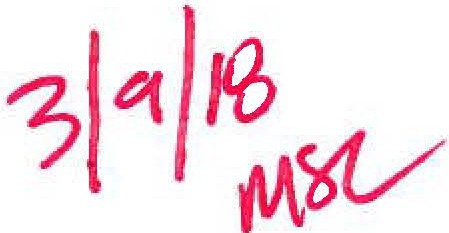 3/9/18
MSC